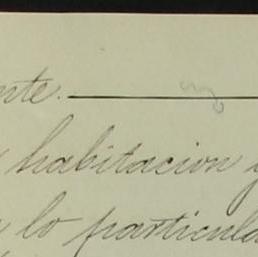 nte.
habitacion y
lo particula